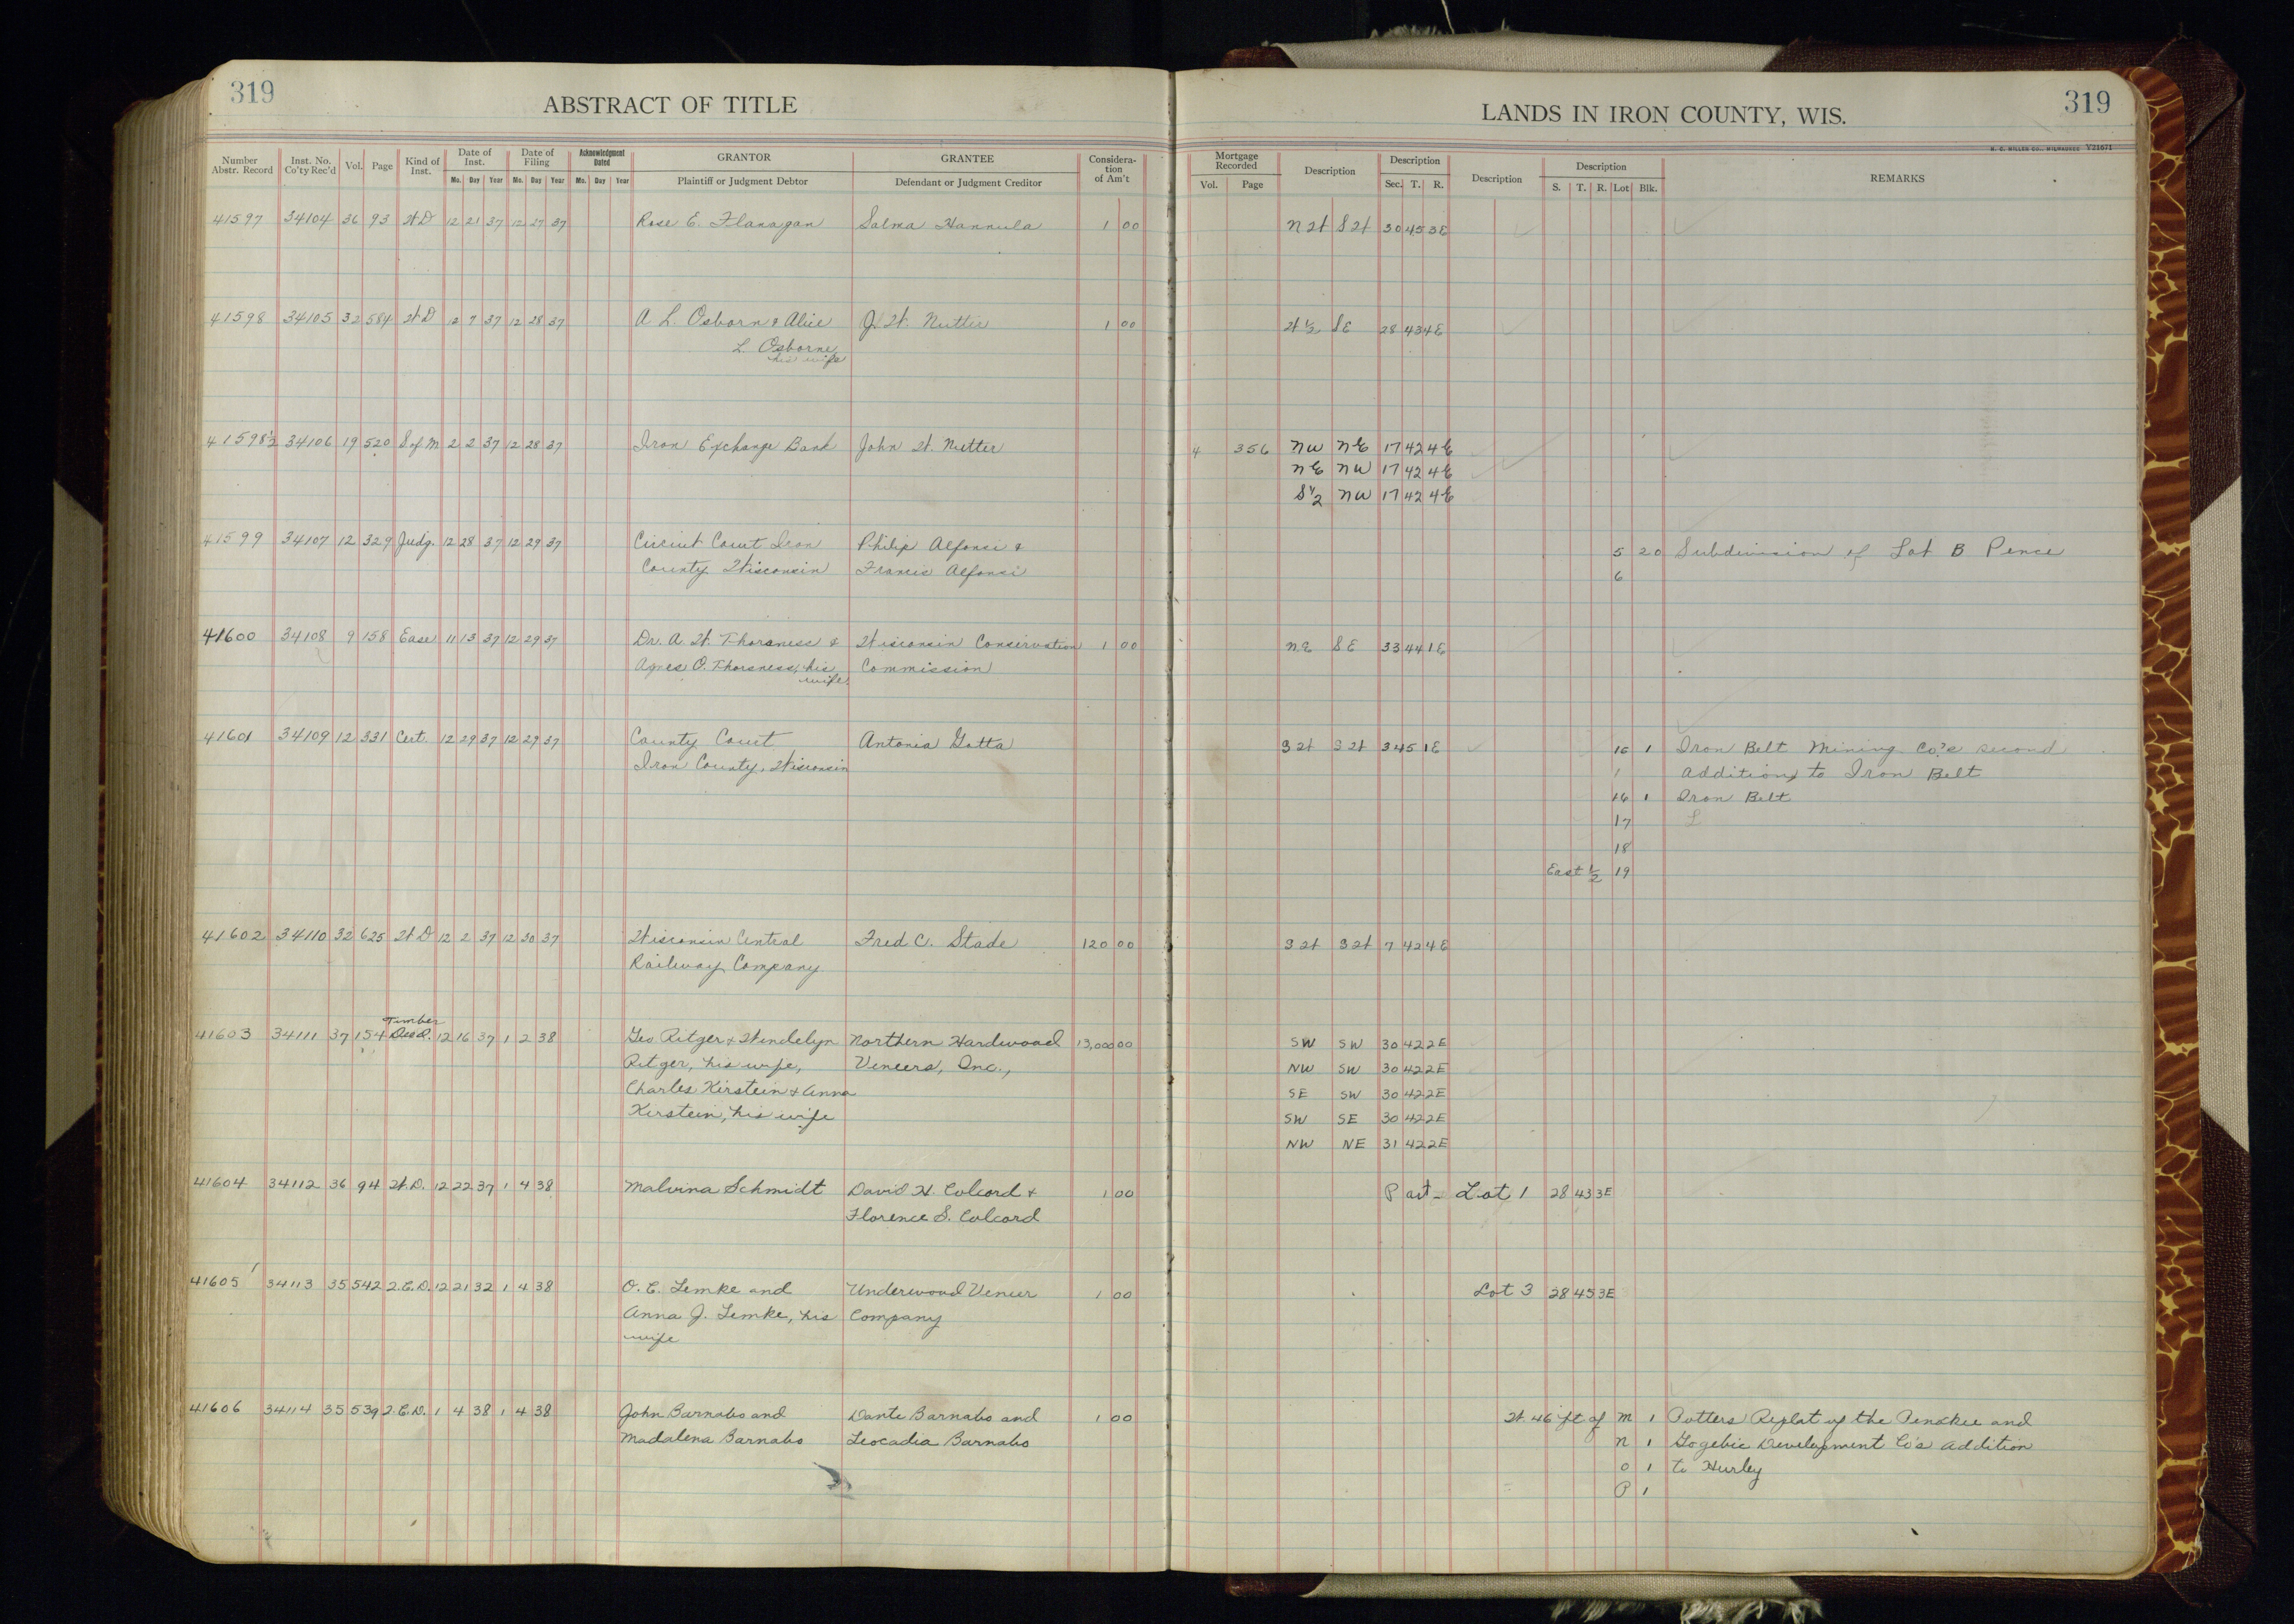 319
ABSTRACT OF TITLE
LANDS IN IRON COUNTY, WIS.
319
H. C. MILLER CO., MILWAUKEE V21671
Number Abstr. Record | Inst. No. Co'ty Rec'd | Vol. | Page | Kind of Inst. | Date of Inst. Mo. Day Year | Date of Filing Mo. Day Year | Acknowledgment Dated Mo. Day Year | GRANTOR Plaintiff or Judgment Debtor | GRANTEE Defendant or Judgment Creditor | Consideration of Am't | Mortgage Recorded Vol. Page | Description | Description Sec. T. R. | Description | Description S. T. R. Lot Blk. | REMARKS
41597 34104 36 93 W D 12 21 37 12 27 37 Rose E. Flanagan Salma Hannula 1 00 N W S W 30 45 3E
41598 34105 32 584 W D 12 7 37 12 28 37 A L. Osborn & Alice J. W. Nutter 1 00 W 1/2 S E 28 43 4E
L. Osborne
his wife
41598 1/2 34106 19 520 S of M 2 2 37 12 28 37 Iron Exchange Bank John W. Nutter 4 356 NW NE 17 42 4E
NE NW 17 42 4E
S 1/2 NW 17 42 4E
41599 34107 12 329 Judg. 12 28 37 12 29 37 Circuit Court Iron Philip Alfonsi & 5 20 Subdivision of Lot B Pence
County Wisconsin Francis Alfonsi 6
41600 34108 9 158 Ease 11 13 37 12 29 37 Dr. A. W. Thorsness & Wisconsin Conservation 1 00 NE SE 33 44 1E
Agnes O. Thorsness, his Commission
wife
41601 34109 12 331 Cert. 12 29 37 12 29 37 County Court Antonia Gotta S W S W 3 45 1E 16 1 Iron Belt Mining Co's second
Iron County, Wisconsin 1 addition to Iron Belt
16 1 Iron Belt
17
18
East 1/2 19
41602 34110 32 625 W D 12 2 37 12 30 37 Wisconsin Central Fred C. Stade 120 00 S W S W 7 42 4E
Railway Company
Timber
41603 34111 37 154 Deed. 12 16 37 1 2 38 Geo Ritger & Wendelyn Northern Hardwood 13,000 00 SW SW 30 42 2E
Ritger, his wife, Veneers, Inc., NW SW 30 42 2E
Charles Kirstein & Anna SE SW 30 42 2E
Kirstein, his wife SW SE 30 42 2E
NW NE 31 42 2E
41604 34112 36 94 W. D. 12 22 37 1 4 38 Malvina Schmidt David H. Colcord & 1 00 Part - Lot 1 28 43 3E
Florence S. Colcord
41605 34113 35 542 2.C.D. 12 21 32 1 4 38 O. C. Lemke and Underwood Veneer 1 00 Lot 3 28 45 3E
Anna J. Lemke, his Company
wife
41606 34114 35 539 2.C.D. 1 4 38 1 4 38 John Barnabo and Dante Barnabo and 1 00 W. 46 ft of M 1 Potters Replat of the Penokee and
Madalena Barnabo Leocadia Barnabo N 1 Gogebic Development Co's addition
O 1 to Hurley
P 1